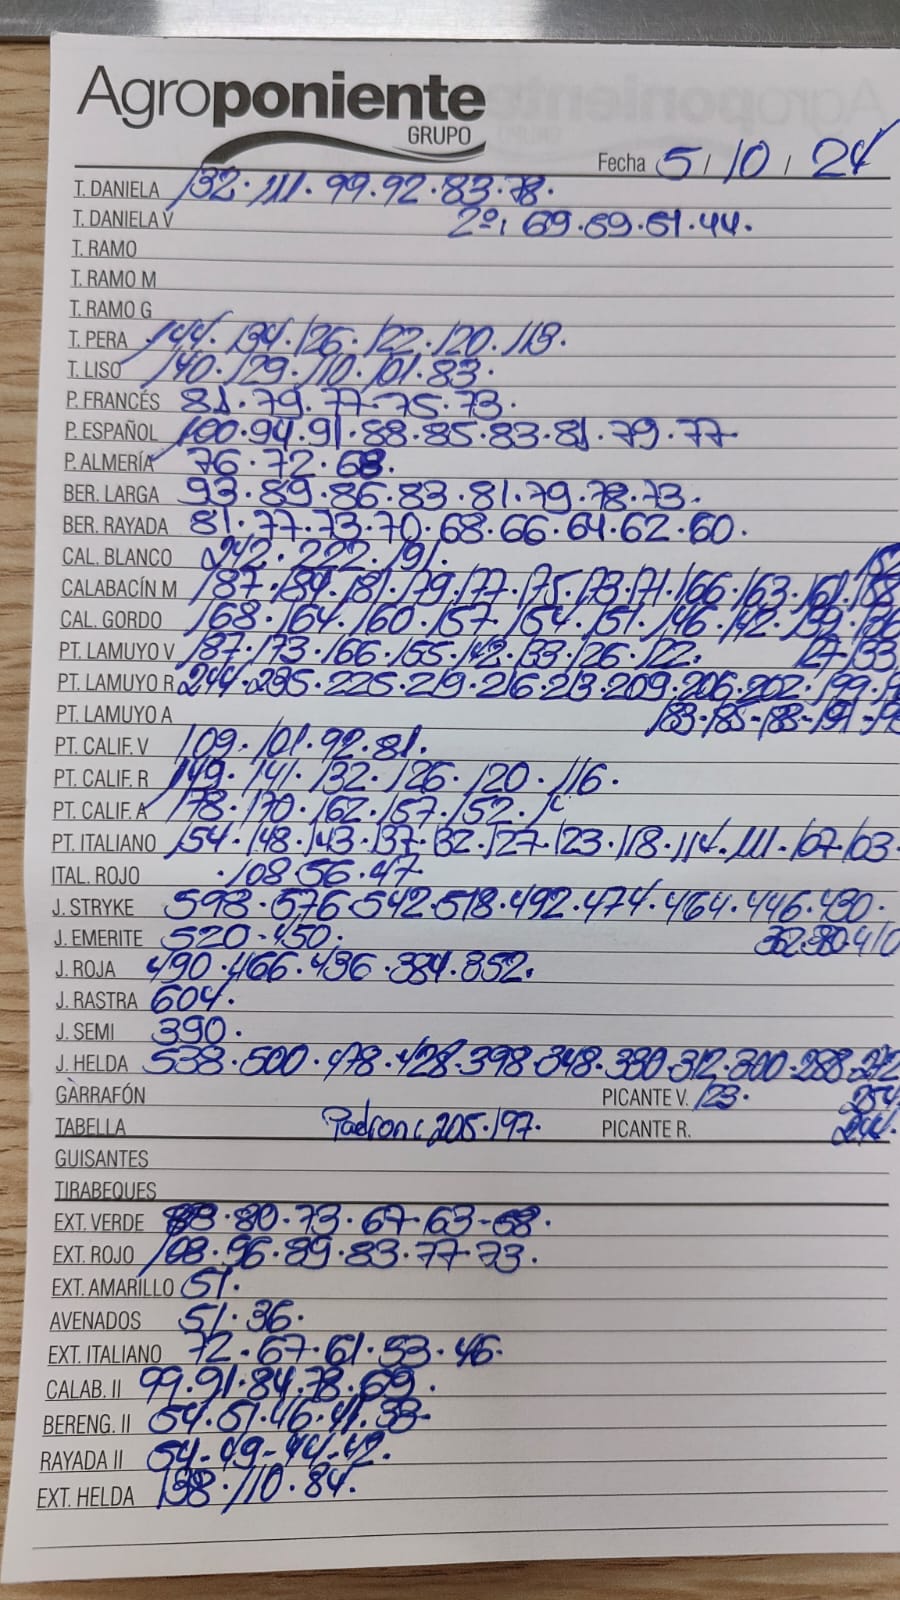 Agroponiente
GRUPO
Fecha 5/10/24
T. DANIELA 132·111·99·92·83·78·
T. DANELA V 2ª: 69·59·51·44·
T. RAMO
T. RAMO M
T. RAMO G
T. PERA 144·134·126·122·120·113·
T. LISO 140·129·110·101·83·
P. FRANCÉS 81·79·77·75·73·
P. ESPAÑOL 100·94·91·88·85·83·81·79·77
P. ALMERÍA 76·72·68·
BER. LARGA 93·89·86·83·81·79·78·73·
BER. RAYADA 81·77·73·70·68·66·64·62·60·
CAL. BLANCO 242·222·191·
CALABACÍN M 187·184·181·179·177·175·173·171·166·163·161·158
CAL. GORDO 168·164·160·157·154·151·146·142·139·136
PT. LAMUYO V 187·173·166·155·142·133·126·122· 127·133
PT. LAMUYO R 244·235·225·219·216·213·209·206·202·199·
PT. LAMUYO A 183·185-188-191-
PT. CALIF. V 109·101·92·81·
PT. CALIF. R 149·141·132·126·120·116·
PT. CALIF. A 178·170·162·157·152·
PT. ITALIANO 154·148·143·137·132·127·123·118·114·111·107·103·
ITAL. ROJO ·108·56·47·
J. STRYKE 598·576·542·518·492·474·464·446·430·
J. EMERITE 520-450· 410
J. ROJA 490·466·436·384·352·
J. RASTRA 604·
J. SEMI 390·
J. HELDA 538·500·478·428·398·348·330·312·300·288·272
GARRAFÓN PICANTE V. 123· 254·
TABELLA Padron: 205·197· PICANTE R. 244·
GUISANTES
TIRABEQUES
EXT. VERDE 88·80·73·67·63-58·
EXT. ROJO 108·96·89·83·77·73·
EXT. AMARILLO 51·
AVENADOS 51·36·
EXT. ITALIANO 72·67·61·53·46·
CALAB. II 99·91·84·78·69·
BERENG. II 54·51·46·41·33·
RAYADA II 54-49-44-42·
EXT. HELDA 138·110·84·